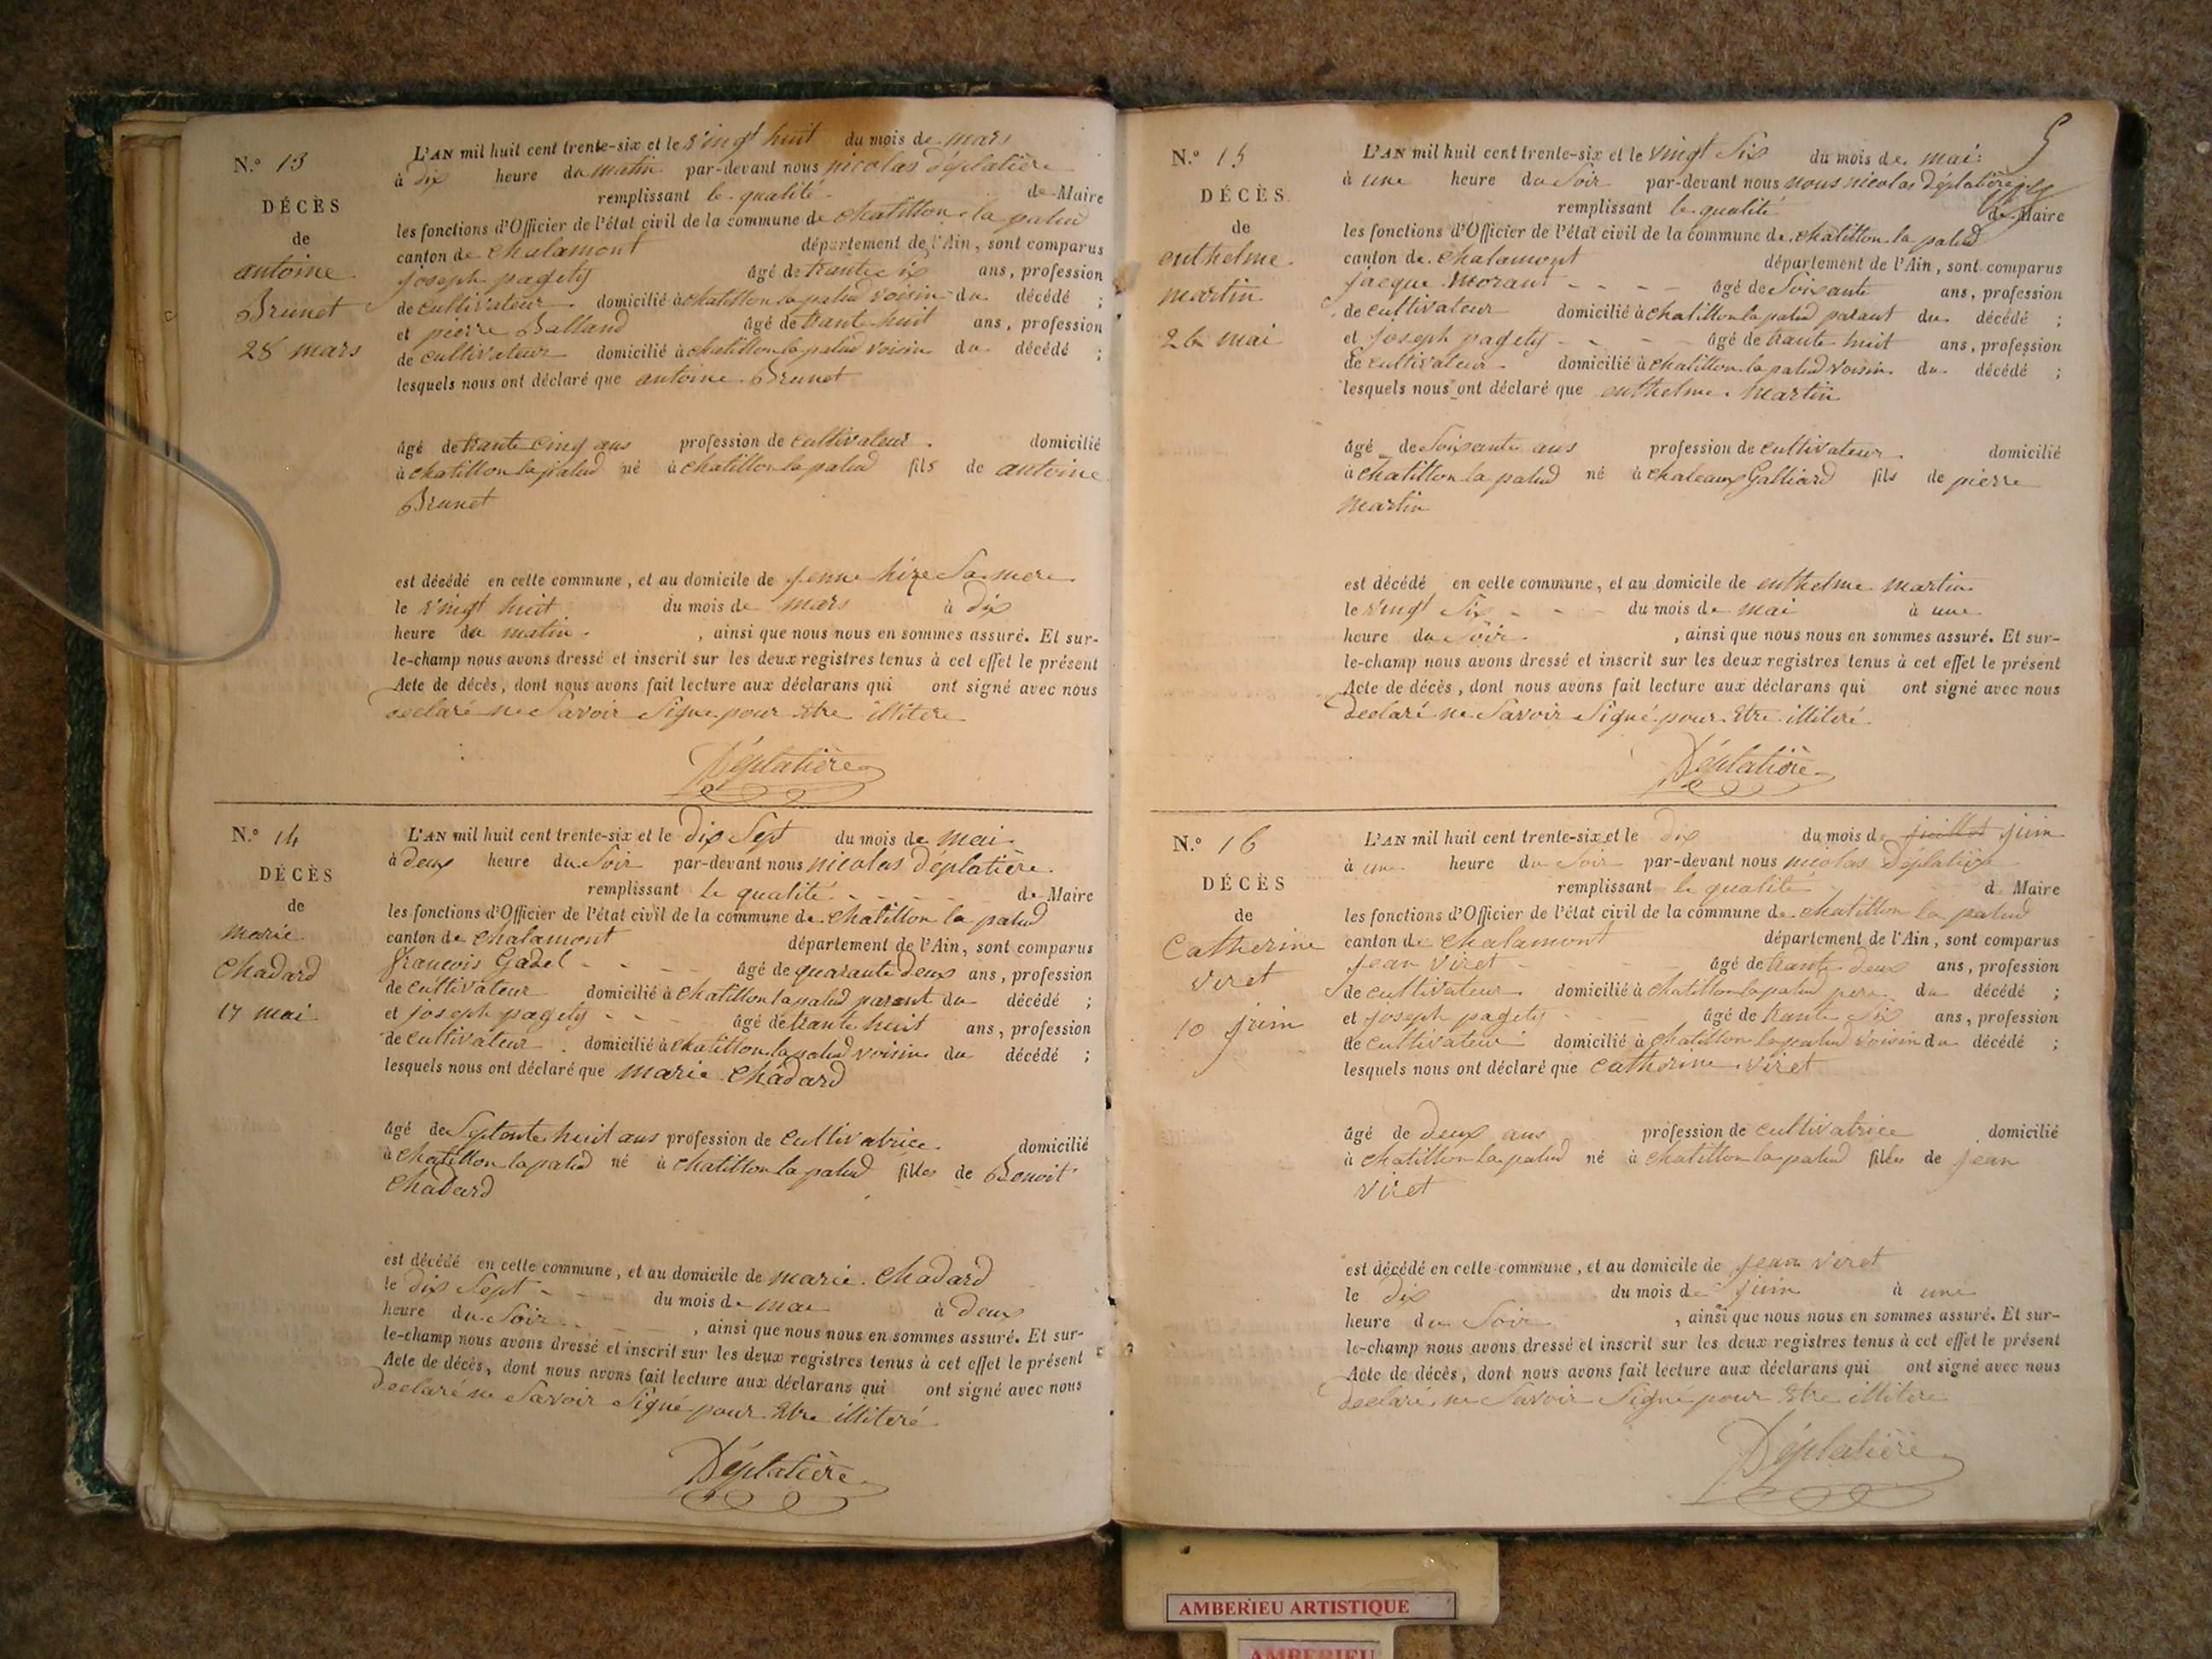 N.° 13
DÉCÈS
de
antoine
Brunet
28 mars
L'AN mil huit cent trente-six et le vingt huit du mois de mars
à dix heure du matin par-devant nous nicolas déplatière
remplissant le qualité de Maire
les fonctions d'Officier de l'état civil de la commune de chatillon la palud
canton de chalamont département de l'Ain, sont comparus
joseph pagety âgé de trante six ans, profession
de cultivateur domicilié à chatillon la palud voisin du décédé ;
et pierre Balland âgé de trante huit ans, profession
de cultivateur domicilié à chatillon la palud voisin du décédé ;
lesquels nous ont déclaré que antoine Brunet
âgé de trante cinq ans profession de cultivateur domicilié
à chatillon la palud né à chatillon la palud fils de antoine
Brunet
est décédé en cette commune, et au domicile de sa mere
le vingt huit du mois de mars à dix
heure du matin, ainsi que nous nous en sommes assuré. Et sur-
le-champ nous avons dressé et inscrit sur les deux registres tenus à cet effet le présent
Acte de décès, dont nous avons fait lecture aux déclarans qui ont signé avec nous
declaré ne Savoir Signe pour Etre illitere
Déplatière
N.° 14
DÉCÈS
de
marie
Chadard
17 mai
L'AN mil huit cent trente-six et le dix Sept du mois de mai
à deux heure du Soir par-devant nous nicolas déplatière
remplissant le qualité de Maire
les fonctions d'Officier de l'état civil de la commune de chatillon la palud
canton de chalamont département de l'Ain, sont comparus
francois Gadel âgé de quarante deux ans, profession
de cultivateur domicilié à chatillon la palud parent du décédé ;
et joseph pagety âgé de trante huit ans, profession
de cultivateur domicilié à chatillon la palud voisin du décédé ;
lesquels nous ont déclaré que marie Chadard
âgé de Septante huit ans profession de cultivatrice domicilié
à chatillon la palud né à chatillon la palud filles de Benoit
Chadard
est décédé en cette commune, et au domicile de marie Chadard
le dix Sept du mois de mai à deux
heure du Soir, ainsi que nous nous en sommes assuré. Et sur-
le-champ nous avons dressé et inscrit sur les deux registres tenus à cet effet le présent
Acte de décès, dont nous avons fait lecture aux déclarans qui ont signé avec nous
declaré ne Savoir Signé pour Etre illiteré
Déplatière
5
N.° 15
DÉCÈS
de
enthelme
martin
26 mai
L'AN mil huit cent trente-six et le vingt Six du mois de mai
à une heure du Soir par-devant nous nous nicolas déplatière
remplissant le qualité de Maire
les fonctions d'Officier de l'état civil de la commune de chatillon la palud
canton de chalamont département de l'Ain, sont comparus
jacque morant âgé de Soixante ans, profession
de cultivateur domicilié à chatillon la palud parant du décédé ;
et joseph pagety âgé de trante huit ans, profession
de cultivateur domicilié à chatillon la palud voisin du décédé ;
lesquels nous ont déclaré que enthelme martin
âgé de Soixante ans profession de cultivateur domicilié
à chatillon la palud né à chateaux Galliard fils de pierre
martin
est décédé en cette commune, et au domicile de enthelme martin
le vingt Six du mois de mai à une
heure du Soir, ainsi que nous nous en sommes assuré. Et sur-
le-champ nous avons dressé et inscrit sur les deux registres tenus à cet effet le présent
Acte de décès, dont nous avons fait lecture aux déclarans qui ont signé avec nous
declaré ne Savoir Signé pour Etre illiteré
Déplatière
N.° 16
DÉCÈS
de
Catherine
viret
10 juin
L'AN mil huit cent trente-six et le dix du mois de juillet juin
à une heure du Soir par-devant nous nicolas déplatière
remplissant le qualité d Maire
les fonctions d'Officier de l'état civil de la commune de chatillon la palud
canton de chalamont département de l'Ain, sont comparus
jean viret âgé de trante deux ans, profession
de cultivateur domicilié à chatillon la palud pere du décédé ;
et joseph pagety âgé de trante six ans, profession
de cultivateur domicilié à chatillon la palud voisin du décédé ;
lesquels nous ont déclaré que catherine viret
âgé de deux ans profession de cultivatrice domicilié
à chatillon la palud né à chatillon la palud filles de jean
viret
est décédé en cette commune, et au domicile de jean viret
le dix du mois de juin à une
heure du Soir, ainsi que nous nous en sommes assuré. Et sur-
le-champ nous avons dressé et inscrit sur les deux registres tenus à cet effet le présent
Acte de décès, dont nous avons fait lecture aux déclarans qui ont signé avec nous
declaré ne Savoir Signé pour Etre illitere
Déplatière
AMBERIEU ARTISTIQUE
AMBERIEU